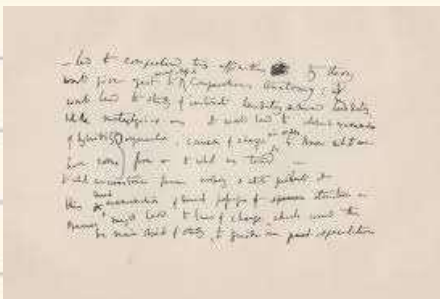 — led to comprehend true affinities. My theory
would give zest to recent & Comparative Anatomy; it
would lead to study of instincts, heredity & mind heredity,
whole metaphysics, it would lead to closest examination
of hybridity & generation, causes of change in order to know what we
have come from & to what we tend —
to what circumstances favour crossing & what prevents it
this & direct examination of direct passages of structure in
species, might lead to laws of change, which would then
be main object of study, to guide our past speculations